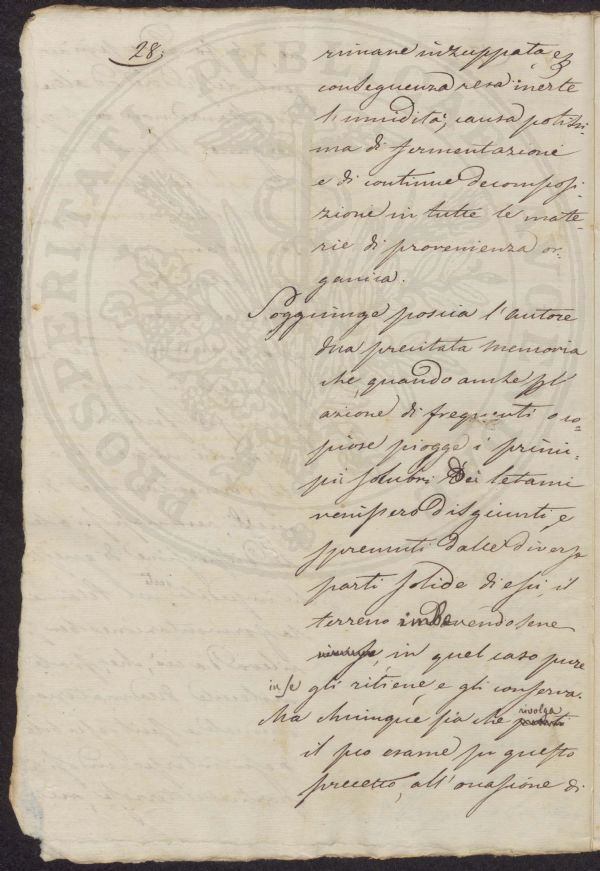 28.
rimane inzuppata, e p
conseguenza resa inerte
l'umidità, causa potissi-
ma di fermentazione
e di continue decomposi-
zione in tutte le mate-
rie di provenienza or-
ganica.
Soggiunge poscia l'autore
della precitata memoria
che quando anche pl
azione di frequenti o co-
piose piogge i princi-
pii solubri dei letami
venissero disgiunti, e
spremuti dalle diverse
parti solide di essi, il
terreno imbevendosene
in quel caso pure
in se gli ritiene, e gli conserva.
Ma chiunque sia che rivolga
il suo esame su questo
precetto, all'occasione di
PROSPERITATI PUBLICAE